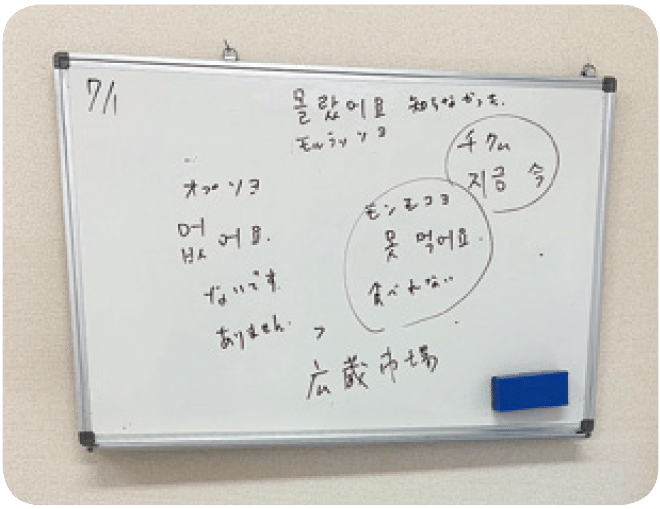 7/1
몰랐어요 知らなかった.
モルラッソヨ
チグム
지금 今
オプソヨ
없어요.
ないです
ありません.
モンモコヨ
못 먹어요.
食べれない
広蔵市場